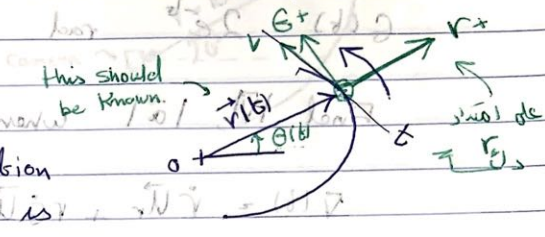 v θ+ r+
this should
be known.
r(t)
θ(t)
t
على امتداد
r
o
tion
is